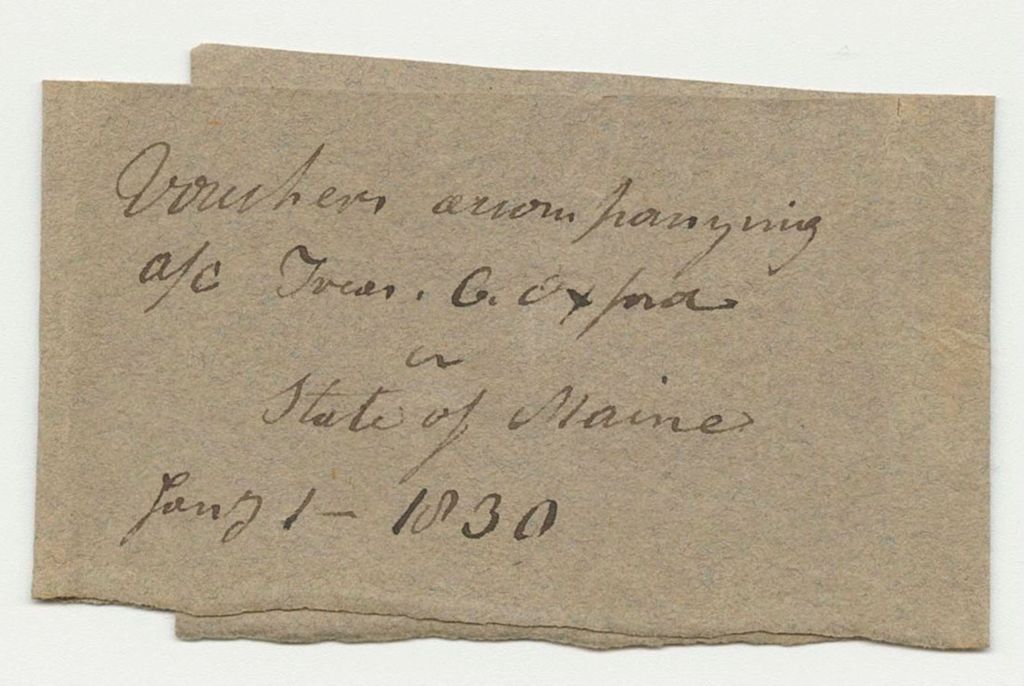 Vouchers accompanying
a/c Treas. C. Oxford
in
State of Maine
Jany 1 - 1830